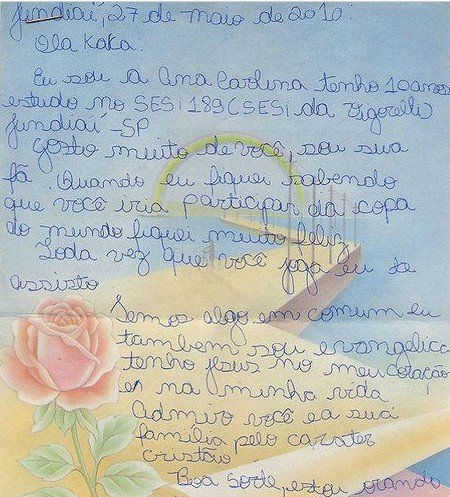 Jundiaí, 27 de maio de 2010.
Ola Kaka!
Eu sou a Ana Carolina tenho 10 anos
estudo no SESI 189 (SESI da Vigorelli)
Jundiaí - SP
Gosto muito de você, sou sua
fã. Quando eu fiquei sabendo
que você iria participar da copa
do mundo fiquei muito feliz
Toda vez que você joga eu te
assisto
Temos algo em comum eu
tambem sou evangelica
tenho Jesus no meu coração
e na minha vida!
Admiro você e a sua
familia pelo carater
cristão.
Boa sorte, estou orando